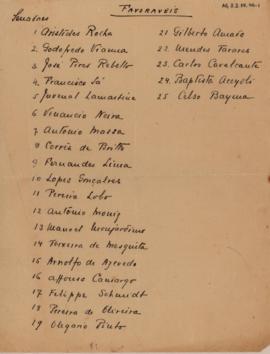 FAVORAVEIS
Senadores
1 Aristides Rocha
2 Godofredo Vianna
3 José Pires Rebello
4 Francisco Sá
5 Juvenal Lamartine
6 Venancio Neiva
7 Antonio Massa
8 Corrêa de Britto
9 Fernandes Lima
10 Lopes Gonçalves
11 Pereira Lobo
12 Antonio Moniz
13 Manoel Monjardim
14 Teixeira de Mesquita
15 Arnolfo de Azevedo
16 Affonso Camargo
17 Felippe Schmidt
18 Pereira de Oliveira
19 Olegario Pinto
21 Gilberto Amado
22 Mendes Tavares
23 Carlos Cavalcante
24 Baptista Accyoli
25 Celso Bayma